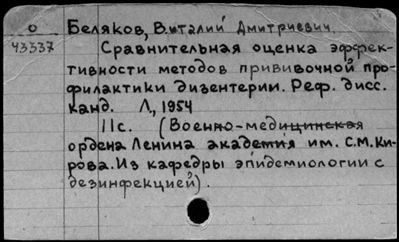 О
43337
Беляков, Виталий Дмитриевич.
Сравнительная оценка эффек-
тивности методов прививочной про-
филактики дизентерии. Реф. дисс.
канд. Л., 1954
11с. (Военно-медицинская
ордена Ленина академия им. С.М.Ки-
рова. Из кафедры эпидемиологии с
дезинфекцией).